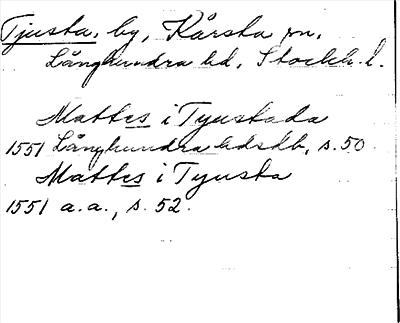 Tjusta, by, Kårsta sn,
Långhundra hd, Stockh. l.
Mattes i Tyustada
1551 Långhundra hdskb, s. 50.
Mattes i Tyusta
1551 a.a., s. 52.